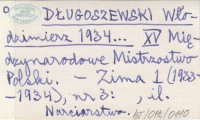 DŁUGOSZEWSKI Wło-
dzimierz 1934... XV Mię-
dzynarodowe Mistrzostwo
Polski. - Zima 1 (1933-
-1934), nr 3: , il.
Narciarstwo.